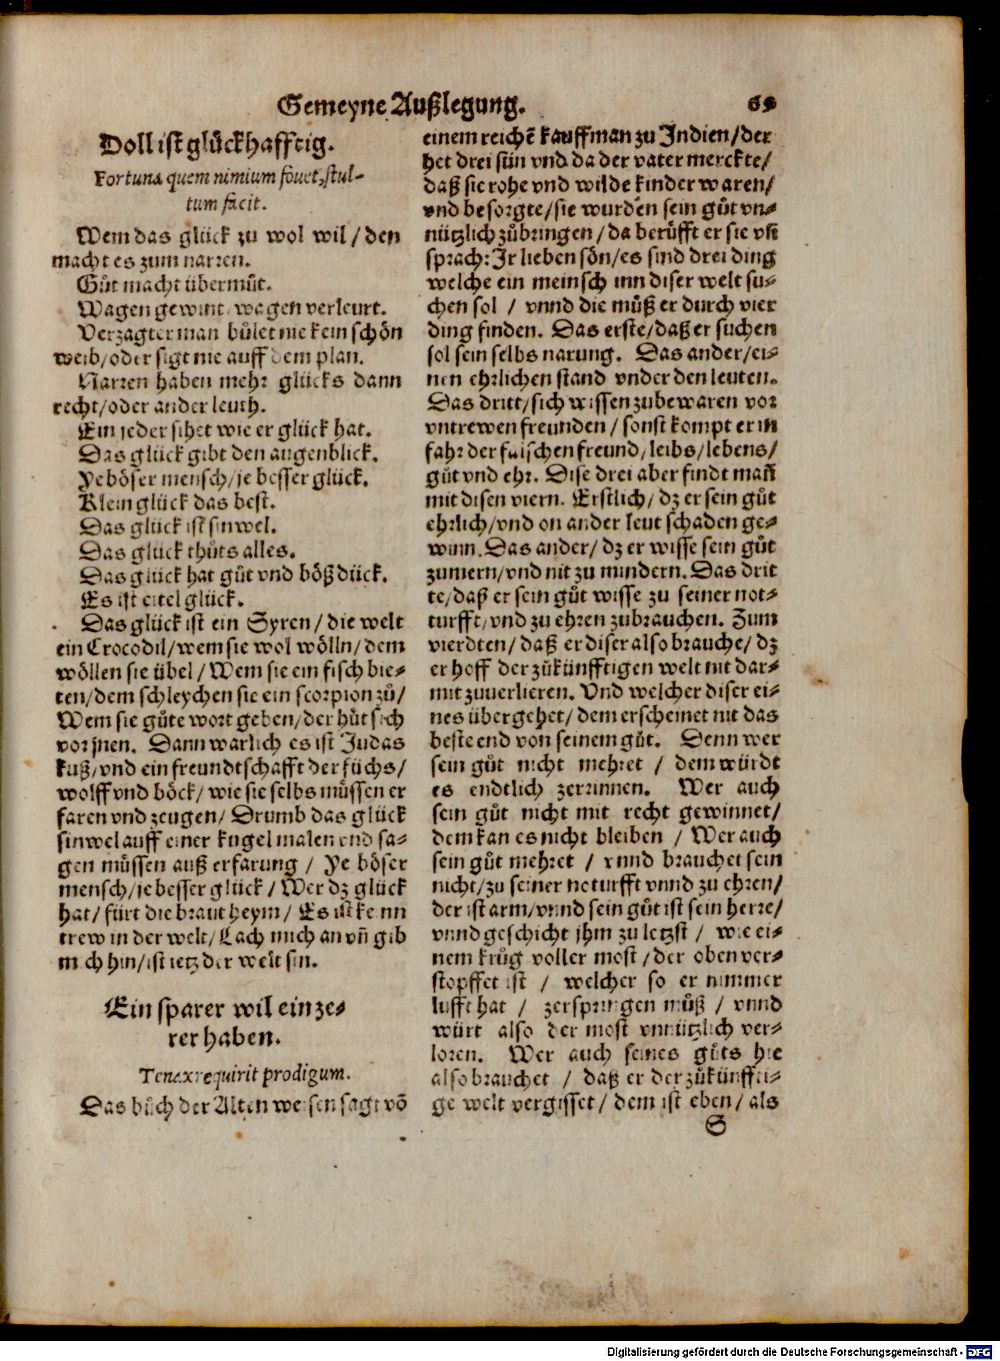 Gemeyne Außlegung. 69
Doll ist glückhafftig.
Fortuna quem nimium fovet, stul-
tum facit.
Wem das glück zu wol wil / den
macht es zum narren.
Gůt macht übermůt.
Wagen gewint, wagen verleurt.
Verzagter man bůlet nie kein schön
weib / oder sigt nie auff dem plan.
Narren haben mehr glücks dann
recht / oder ander leuth.
Ein ieder sihet wie er glück hat.
Das glück gibt den augenblick.
Ye böser mensch / je besser glück.
Klein glück das best.
Das glück ist sinwel.
Das glück thůts alles.
Das glück hat gůt vnd böß dück.
Es ist eitel glück.
Das glück ist ein Syren / die welt
ein Crocodil / wem sie wol wölln / dem
wöllen sie übel / Wem sie ein fisch bie-
ten / dem schleychen sie ein scorpion zů /
Wem sie gůte wort geben / der hůt sich
vor jnen. Dann warlich es ist Judas
kuß / vnd ein freundtschafft der füchs /
wolff vnd böck / wie sie selbs müssen er
faren vnd zeugen / Drumb das glück
sinwel auff einer kugel malen vnd sa-
gen müssen auß erfarung / Ye böser
mensch / je besser glück / Wer dz glück
hat / fürt die braut heym / Es ist kenn
trew in der welt / Lach mich an vñ gib
mich hin / ist ietz der welt sin.
Ein sparer wil ein ze-
rer haben.
Tenax requirit prodigum.
Das bůch der Alten weisen sagt võ
einem reichē kauffman zu Indien / der
het drei sün vnd da der vater merckte /
daß sie rohe vnd wilde kinder waren /
vnd besorgte / sie wurden sein gůt vn-
nützlich zůbringen / da berůfft er sie vñ
sprach: Jr lieben sön / es sind drei ding
welche ein meinsch inn diser welt su-
chen sol / vnnd die můß er durch vier
ding finden. Das erste / daß er suchen
sol sein selbs narung. Das ander / ei-
nen ehrlichen stand vnder den leuten.
Das dritt / sich wissen zubewaren vor
vntrewen freunden / sonst kompt er in
fahr der falschen freund / leibs / lebens /
gůt vnd ehr. Dise drei aber findt mañ
mit disen viern. Erstlich / dz er sein gůt
ehrlich / vnd on ander leut schaden ge-
winn. Das ander / dz er wisse sein gůt
zumern / vnd nit zu mindern. Das drit
te / daß er sein gůt wisse zu seiner not-
turfft / vnd zu ehren zubrauchen. Zum
vierdten / daß er diser also brauche / dz
er hoff der zůkünfftigen welt nit dar-
mit zuuerlieren. Vnd welcher diser ei-
nes übergehet / dem erscheinet nit das
beste end von seinem gůt. Denn wer
sein gůt nicht mehret / dem würdt
es endtlich zerrinnen. Wer auch
sein gůt nicht mit recht gewinnet /
dem kan es nicht bleiben / Wer auch
sein gůt mehret / vnnd brauchet sein
nicht / zu seiner noturfft vnnd zu ehren /
der ist arm / vnnd sein gůt ist sein herre /
vnnd geschicht jhm zu letzst / wie ei-
nem krůg voller most / der oben ver-
stopffet ist / welcher so er nimmer
lufft hat / zerspringen můß / vnnd
würt also der most vnnützlich ver-
loren. Wer auch seines gůts hie
also brauchet / daß er der zůkünffti-
ge welt vergisset / dem ist eben / als
S
Digitalisierung gefördert durch die Deutsche Forschungsgemeinschaft - DFG